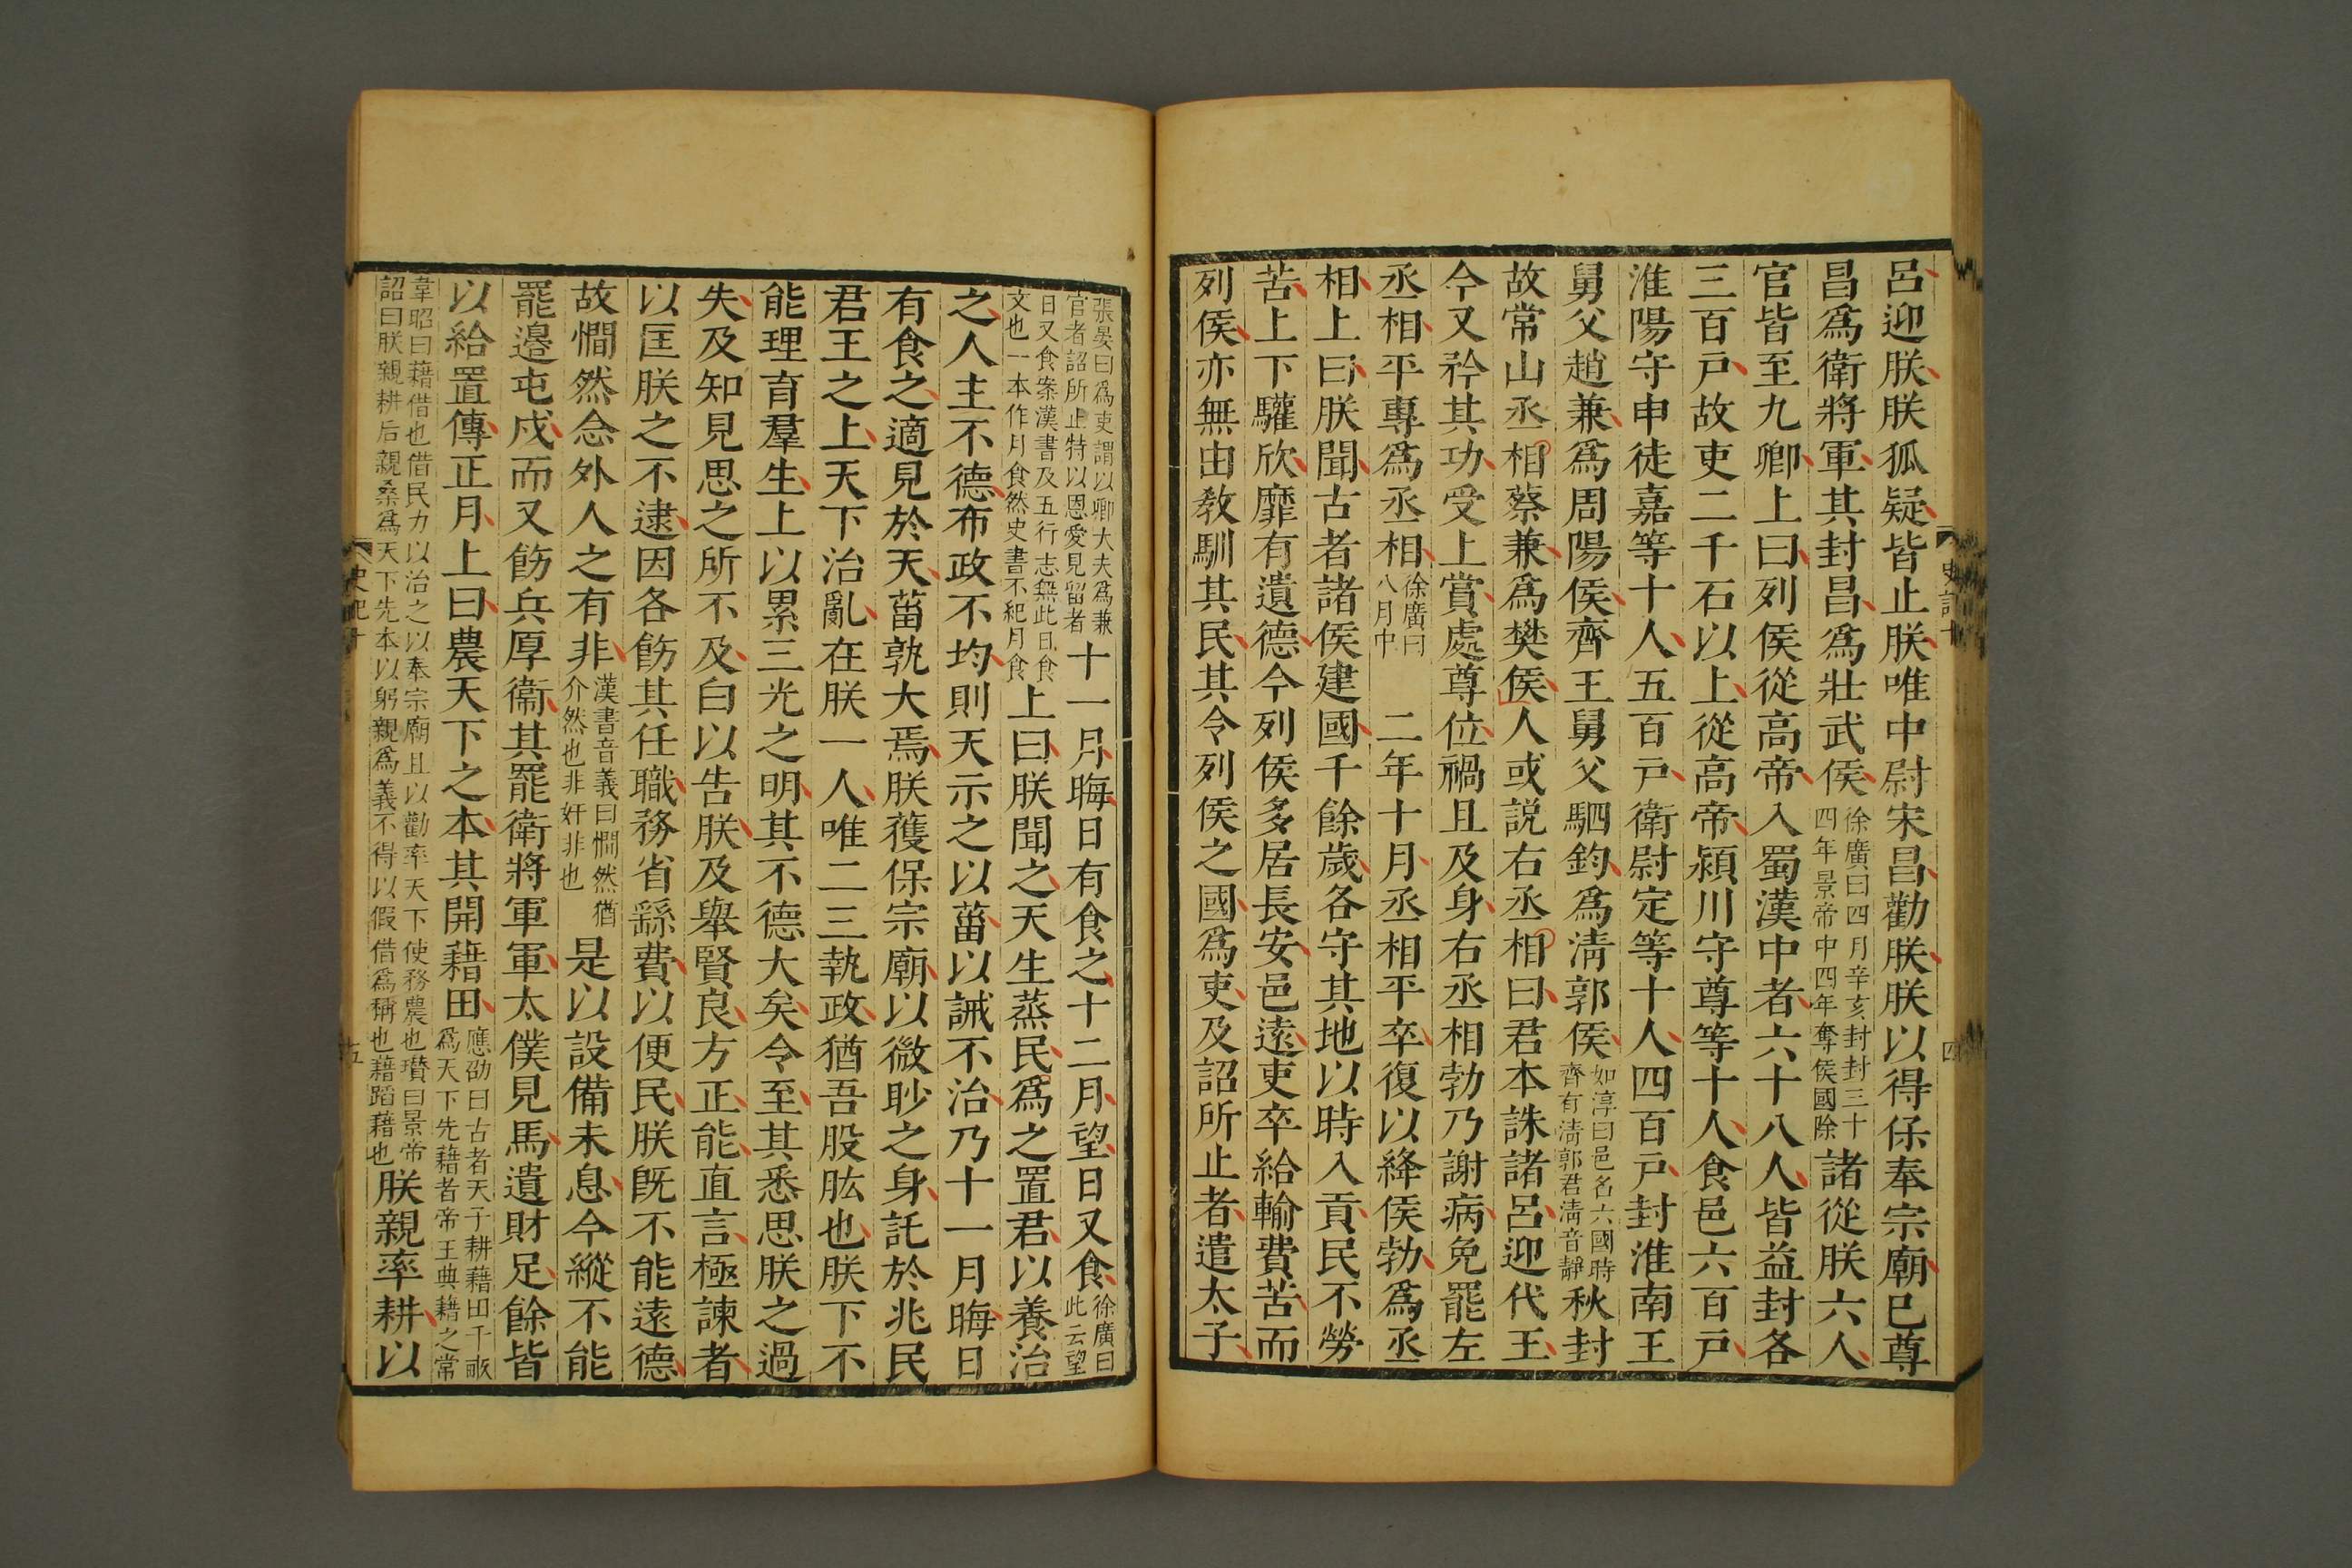 呂迎朕朕狐疑皆止朕唯中尉宋昌勸朕朕以得保奉宗廟已尊
昌爲衛將軍其封昌爲壯武侯徐廣曰四月辛亥封封三十四年景帝中四年奪侯國除諸從朕六人
官皆至九卿上曰列侯從高帝入蜀漢中者六十八人皆益封各
三百戸故吏二千石以上從高帝潁川守尊等十人食邑六百戸
淮陽守申徒嘉等十人五百戸衛尉定等十人四百戸封淮南王
舅父趙兼爲周陽侯齊王舅父駟鈞爲淸郭侯如淳曰邑名六國時齊有淸郭君淸音靜秋封
故常山丞相蔡兼爲樊侯人或説右丞相曰君本誅諸呂迎代王
今又矜其功受上賞處尊位禍且及身右丞相勃乃謝病免罷左
丞相平專爲丞相徐廣曰八月中二年十月丞相平卒復以絳侯勃爲丞
相上曰朕聞古者諸侯建國千餘歲各守其地以時入貢民不勞
苦上下驩欣靡有遺德今列侯多居長安邑遠吏卒給輸費苦而
列侯亦無由敎馴其民其令列侯之國爲吏及詔所止者遣太子
史記十
四
張晏曰爲吏謂以卿大夫爲兼官者詔所止特以恩愛見留者十一月晦日有食之十二月望日又食徐廣曰此云望
日又食案漢書及五行志無此日食文也一本作月食然史書不紀月食上曰朕聞之天生蒸民爲之置君以養治
之人主不德布政不均則天示之以菑以誡不治乃十一月晦日
有食之適見於天菑孰大焉朕獲保宗廟以微眇之身託於兆民
君王之上天下治亂在朕一人唯二三執政猶吾股肱也朕下不
能理育羣生上以累三光之明其不德大矣令至其悉思朕之過
失及知見思之所不及白以告朕及舉賢良方正能直言極諫者
以匡朕之不逮因各飭其任職務省繇費以便民朕旣不能遠德
故憪然念外人之有非漢書音義曰憪然猶介然也非奸非也是以設備未息今縱不能
罷邊屯戍而又飭兵厚衞其罷衛將軍軍太僕見馬遺財足餘皆
以給置傳正月上曰農天下之本其開藉田應劭曰古者天子耕藉田千畝爲天下先藉者帝王典藉之常
韋昭曰藉借也借民力以治之以奉宗廟且以勸率天下使務農也瓚曰景帝詔曰朕親耕后親桑爲天下先本以躬親爲義不得以假借爲稱也藉蹈藉也朕親率耕以
史記十
五